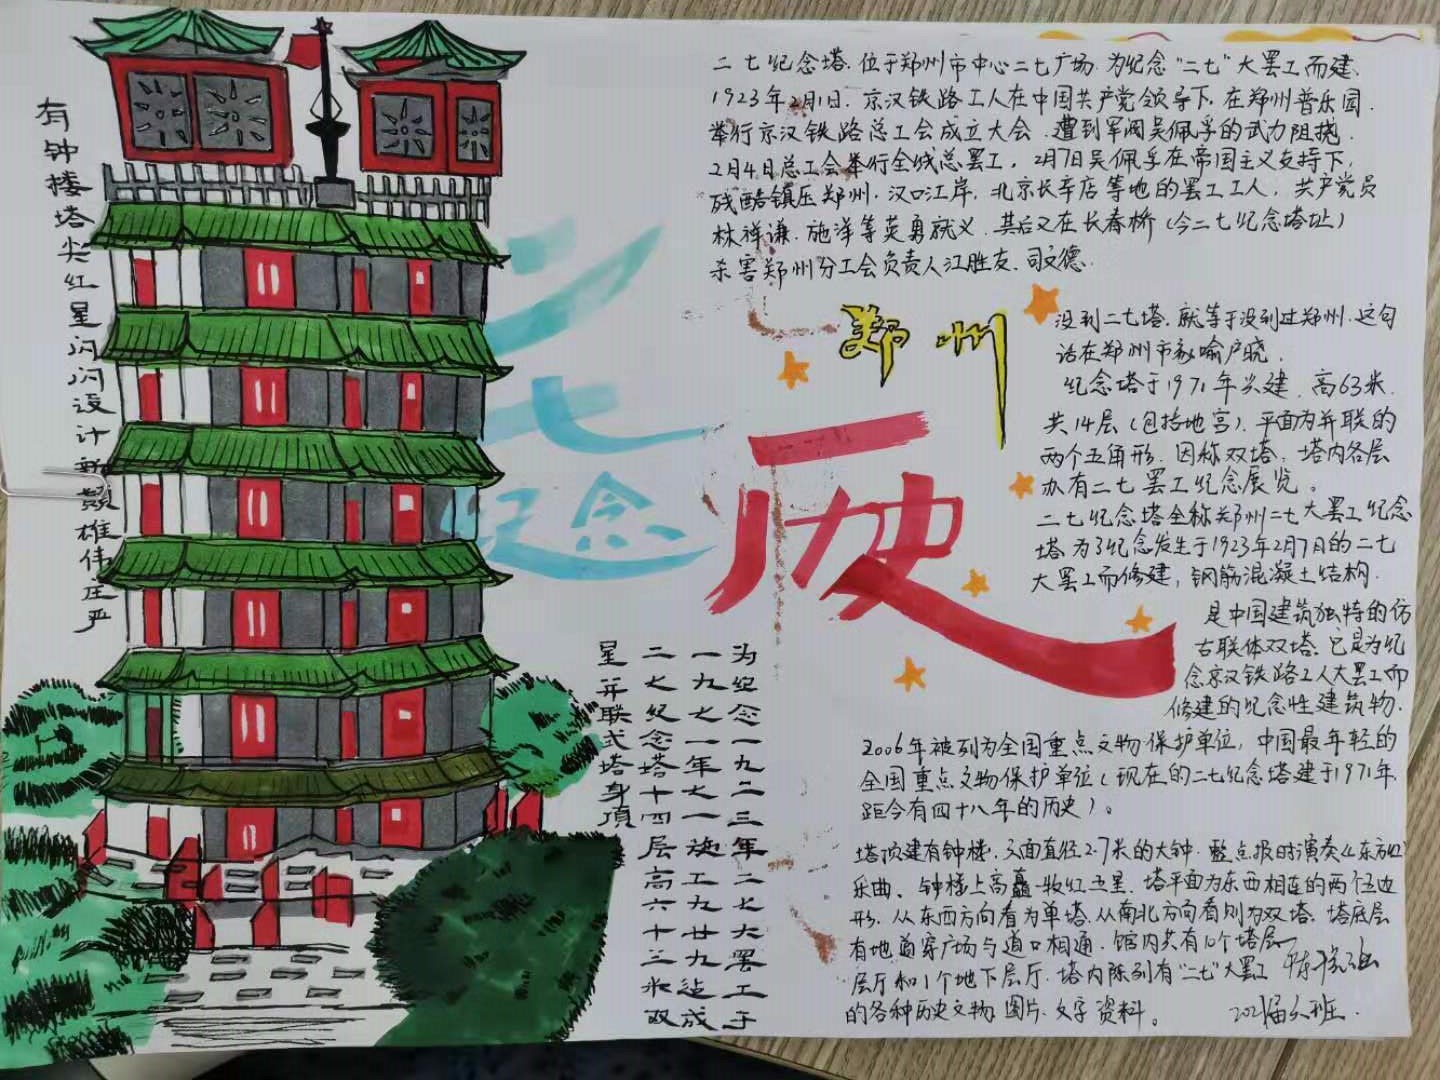 二七纪念塔、位于郑州市中心二七广场、为纪念"二七"大罢工而建、
1923年2月1日、京汉铁路工人在中国共产党领导下、在郑州普乐园、
举行京汉铁路总工会成立大会、遭到军阀吴佩孚的武力阻挠、
2月4日总工会举行全线总罢工、2月7日吴佩孚在帝国主义支持下、
残酷镇压郑州、汉口江岸、北京长辛店等地的罢工工人、共产党员
林祥谦、施洋等英勇就义、其后又在长春桥(今二七纪念塔址)
杀害郑州分工会负责人汪胜友、司文德、
郑州
二七
纪念
历史
没到二七塔、就等于没到过郑州、这句
话在郑州市家喻户晓、
纪念塔于1971年兴建、高63米、
共14层(包括地宫)、平面为并联的
两个五角形、因称双塔、塔内各层
办有二七罢工纪念展览。
二七纪念塔全称郑州二七大罢工纪念
塔、为了纪念发生于1923年2月7日的二七
大罢工而修建，钢筋混凝土结构、
是中国建筑独特的仿
古联体双塔、它是为纪
念京汉铁路工人大罢工而
修建的纪念性建筑物、
2006年被列为全国重点文物保护单位，中国最年轻的
全国重点文物保护单位(现在的二七纪念塔建于1971年、
距今有四十八年的历史)。
塔顶建有钟楼、六面直径2.7米的大钟、整点报时演奏《东方红》
乐曲、钟楼上高矗一枚红五星、塔平面为东西相连的两个五边
形、从东西方向看为单塔、从南北方向看则为双塔、塔底层
有地道穿广场与道口相通、馆内共有10个塔层
层厅和1个地下层厅、塔内陈列有"二七"大罢工
的各种历史文物、图片、文字资料。
2021届 班
为纪念一九二三年二七大罢工于
一九七一年七一施工九廿九迄成
二七纪念塔十四层高六十三米双
星并联式塔身顶
有钟楼塔尖红星闪闪设计新颖雄伟庄严